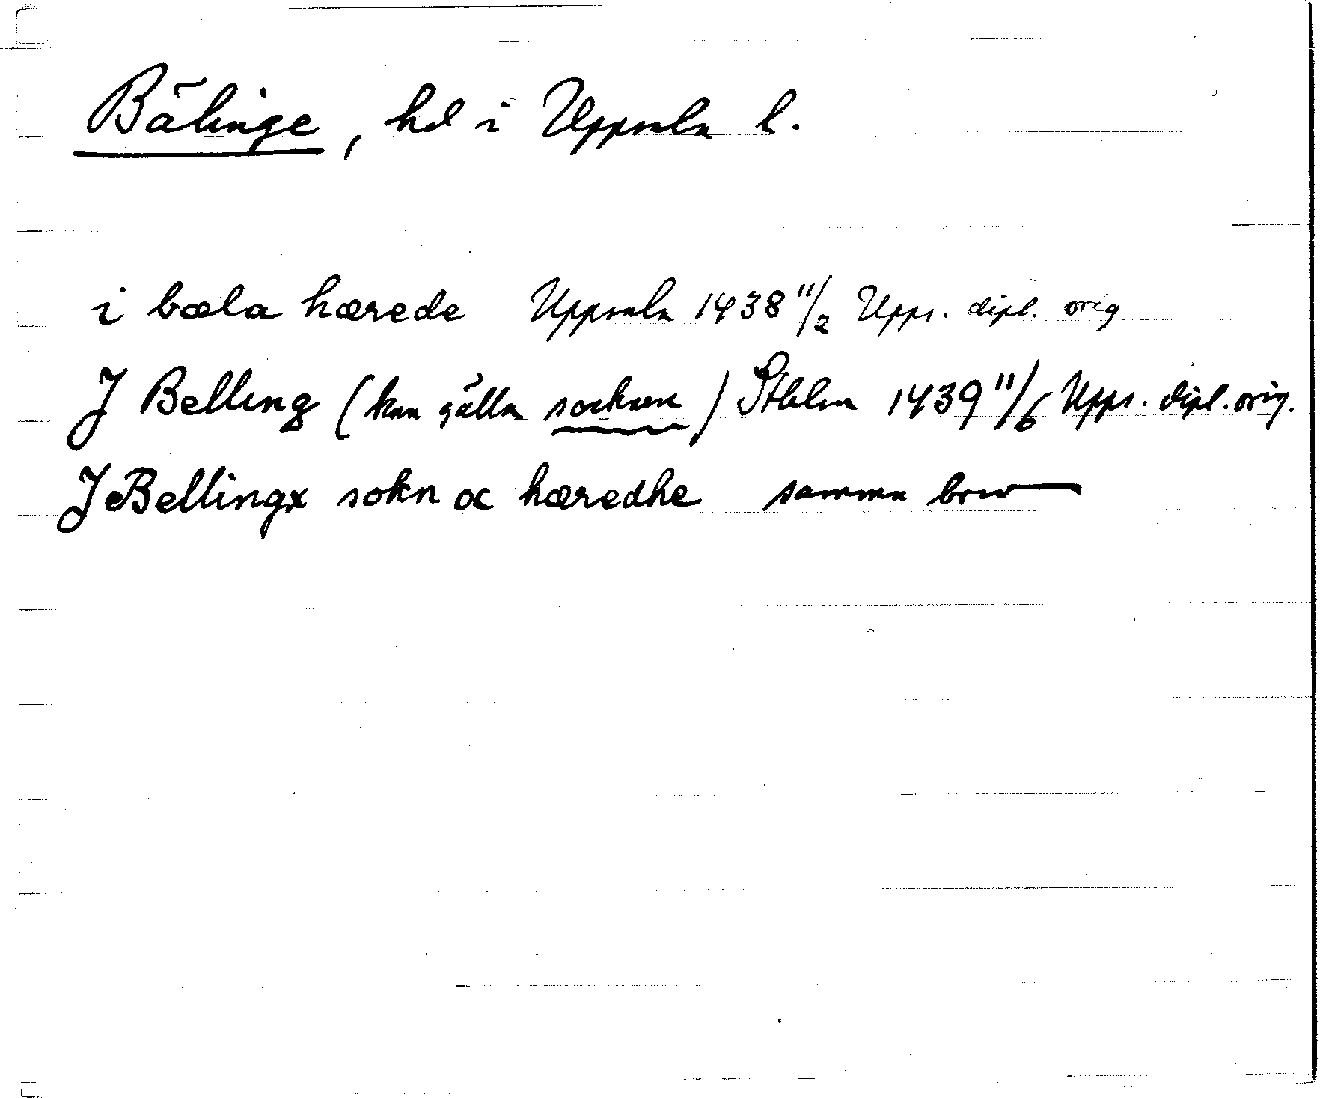 Bälinge, hd i Uppsala l.
i bæla hærede Uppsala 1438 11/2 Upps. dipl. orig
J Belling (kan gälla socknen) Sthlm 1439 11/6 Upps. dipl. orig.
J Bellingx sokn oc hæredhe samma brev